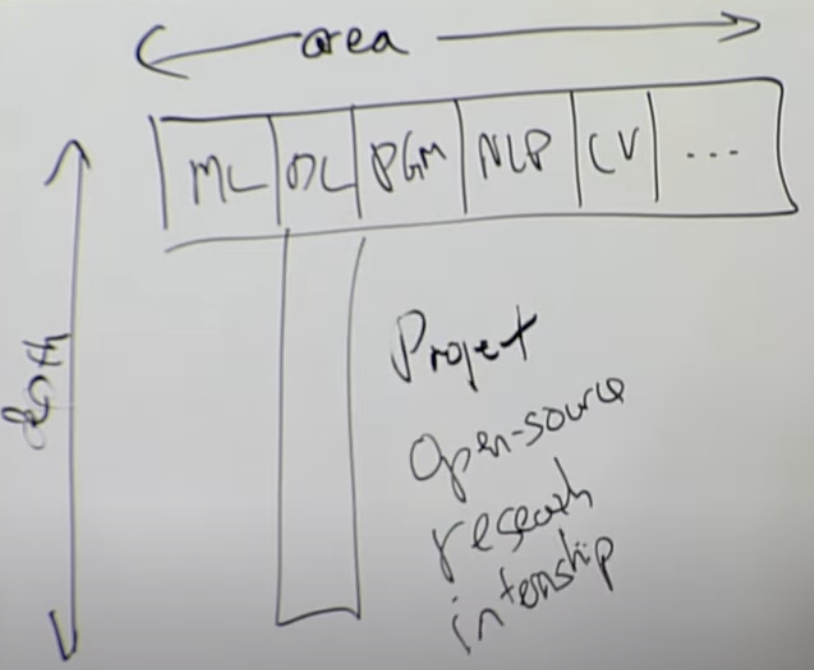 area
ML DL PGM NLP CV ...
depth
Project
open-source
research
internship